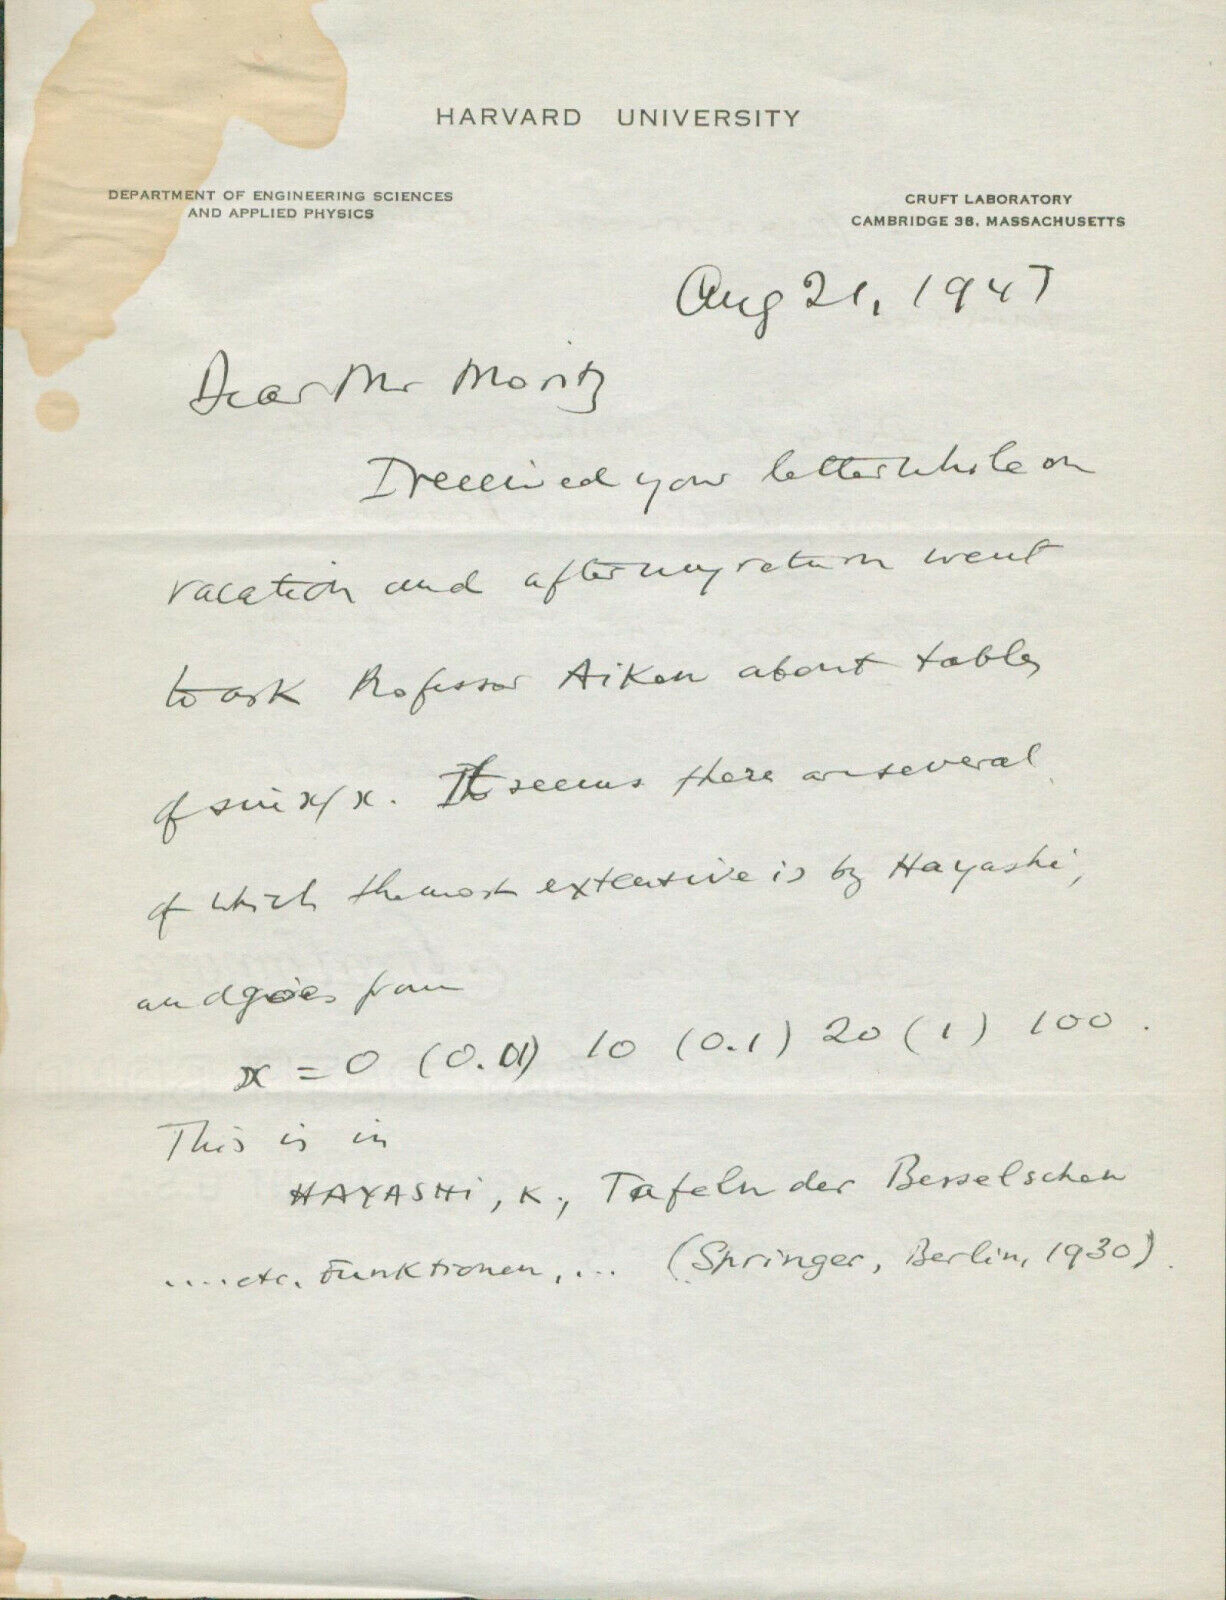 HARVARD UNIVERSITY
DEPARTMENT OF ENGINEERING SCIENCES
AND APPLIED PHYSICS
CRUFT LABORATORY
CAMBRIDGE 38, MASSACHUSETTS
Aug 21, 1947
Dear Mr Moritz
I received your letter while on
vacation and after my return went
to ask Professor Aiken about tables
of sin x/x. It seems there are several
of which the most extensive is by Hayashi,
and goes from
x = 0 (0.01) 10 (0.1) 20 (1) 100.
This is in
HAYASHI, K., Tafeln der Besselschen
....etc. Funktionen, ... (Springer, Berlin, 1930).